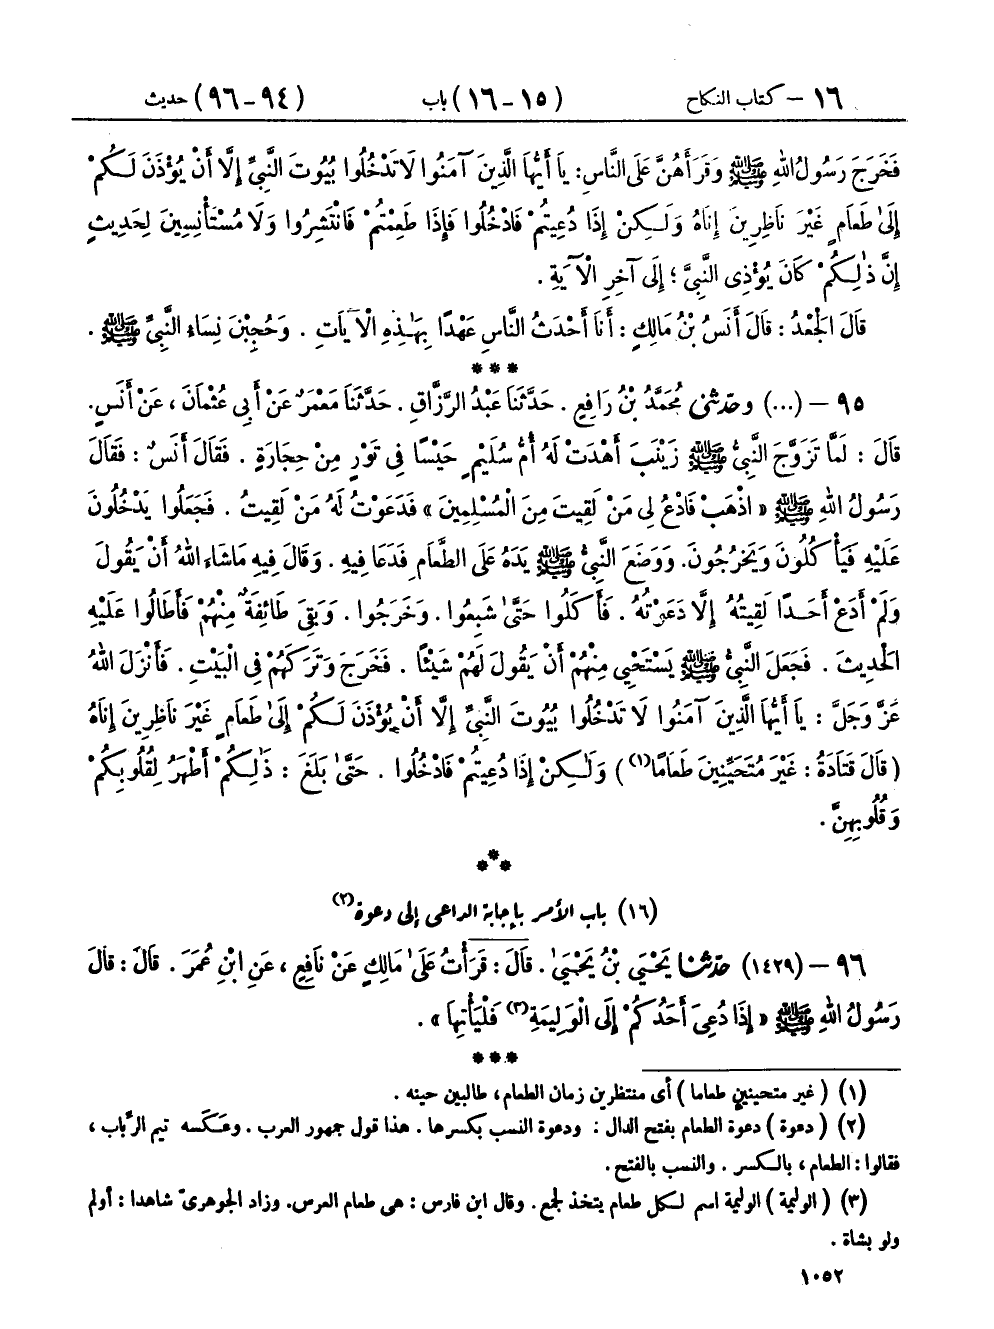 ١٦ – كتاب النكاح (١٥-١٦) باب (٩٤-٩٦) حديث
فَخَرَجَ رَسُولُ اللهِ ﷺ وَقَرَأَهُنَّ عَلَى النَّاسِ: يَا أَيُّهَا الَّذِينَ آمَنُوا لَا تَدْخُلُوا بُيُوتَ النَّبِيِّ إِلَّا أَنْ يُؤْذَنَ لَكُمْ
إِلَىٰ طَعَامٍ غَيْرَ نَاظِرِينَ إِنَاهُ وَلَكِنْ إِذَا دُعِيتُمْ فَادْخُلُوا فَإِذَا طَعِمْتُمْ فَانْتَشِرُوا وَلَا مُسْتَأْنِسِينَ لِحَدِيثٍ
إِنَّ ذَٰلِكُمْ كَانَ يُؤْذِى النَّبِيَّ ؛ إِلَى آخِرِ الْآيَةِ .
قَالَ الْجَعْدُ : قَالَ أَنَسُ بْنُ مَالِكٍ : أَنَا أَحْدَثُ النَّاسِ عَهْدًا بِهَٰذِهِ الْآيَاتِ . وَحُجِبْنَ نِسَاءُ النَّبِيِّ ﷺ .
***
٩٥ – (...) وحَدَّثَنِى مُحَمَّدُ بْنُ رَافِعٍ . حَدَّثَنَا عَبْدُ الرَّزَّاقِ . حَدَّثَنَا مَعْمَرٌ عَنْ أَبِى عُثْمَانَ ، عَنْ أَنَسٍ.
قَالَ : لَمَّا تَزَوَّجَ النَّبِيُّ ﷺ زَيْنَبَ أَهْدَتْ لَهُ أُمُّ سُلَيْمٍ حَيْسًا فِى تَوْرٍ مِنْ حِجَارَةٍ . فَقَالَ أَنَسٌ : فَقَالَ
رَسُولُ اللهِ ﷺ « اذْهَبْ فَادْعُ لِى مَنْ لَقِيتَ مِنَ الْمُسْلِمِينَ » فَدَعَوْتُ لَهُ مَنْ لَقِيتُ . فَجَعَلُوا يَدْخُلُونَ
عَلَيْهِ فَيَأْكُلُونَ وَيَخْرُجُونَ. وَوَضَعَ النَّبِيُّ ﷺ يَدَهُ عَلَى الطَّعَامِ فَدَعَا فِيهِ . وَقَالَ فِيهِ مَاشَاءَ اللهُ أَنْ يَقُولَ
وَلَمْ أَدَعْ أَحَدًا لَقِيتُهُ إِلَّا دَعَوْتُهُ . فَأَكَلُوا حَتَّىٰ شَبِعُوا . وَخَرَجُوا . وَبَقِىَ طَائِفَةٌ مِنْهُمْ فَأَطَالُوا عَلَيْهِ
الْحَدِيثَ . فَجَعَلَ النَّبِيُّ ﷺ يَسْتَحْيِى مِنْهُمْ أَنْ يَقُولَ لَهُمْ شَيْئًا . فَخَرَجَ وَتَرَكَهُمْ فِى الْبَيْتِ . فَأَنْزَلَ اللهُ
عَزَّ وَجَلَّ : يَا أَيُّهَا الَّذِينَ آمَنُوا لَا تَدْخُلُوا بُيُوتَ النَّبِيِّ إِلَّا أَنْ يُؤْذَنَ لَكُمْ إِلَىٰ طَعَامٍ غَيْرَ نَاظِرِينَ إِنَاهُ
( قَالَ قَتَادَةُ : غَيْرَ مُتَحَيِّنِينَ طَعَامًا(١) ) وَلَٰكِنْ إِذَا دُعِيتُمْ فَادْخُلُوا . حَتَّىٰ بَلَغَ : ذَٰلِكُمْ أَطْهَرُ لِقُلُوبِكُمْ
وَقُلُوبِهِنَّ .
***
(١٦) باب الأمر بإجابة الداعى إلى دعوة(٢)
٩٦ – (١٤٢٩) حَدَّثَنَا يَحْيَى بْنُ يَحْيَىٰ . قَالَ : قَرَأْتُ عَلَىٰ مَالِكٍ عَنْ نَافِعٍ ، عَنِ ابْنِ عُمَرَ . قَالَ : قَالَ
رَسُولُ اللهِ ﷺ « إِذَا دُعِىَ أَحَدُكُمْ إِلَى الْوَلِيمَةِ(٣) فَلْيَأْتِهَا » .
***
(١) ( غير متحينين طعاما ) أى منتظرين زمان الطعام، طالبين حينه .
(٢) ( دعوة ) دعوة الطعام بفتح الدال : ودعوة النسب بكسرها . هذا قول جمهور العرب . وعَكَسه تيم الرِّباب ،
فقالوا : الطعام ، بالكسر . والنسب بالفتح.
(٣) ( الوليمة ) الوليمة اسم لكل طعام يتخذ لجمع. وقال ابن فارس : هى طعام العرس. وزاد الجوهرىّ شاهدا : أولم
ولو بشاة .
١٠٥٢